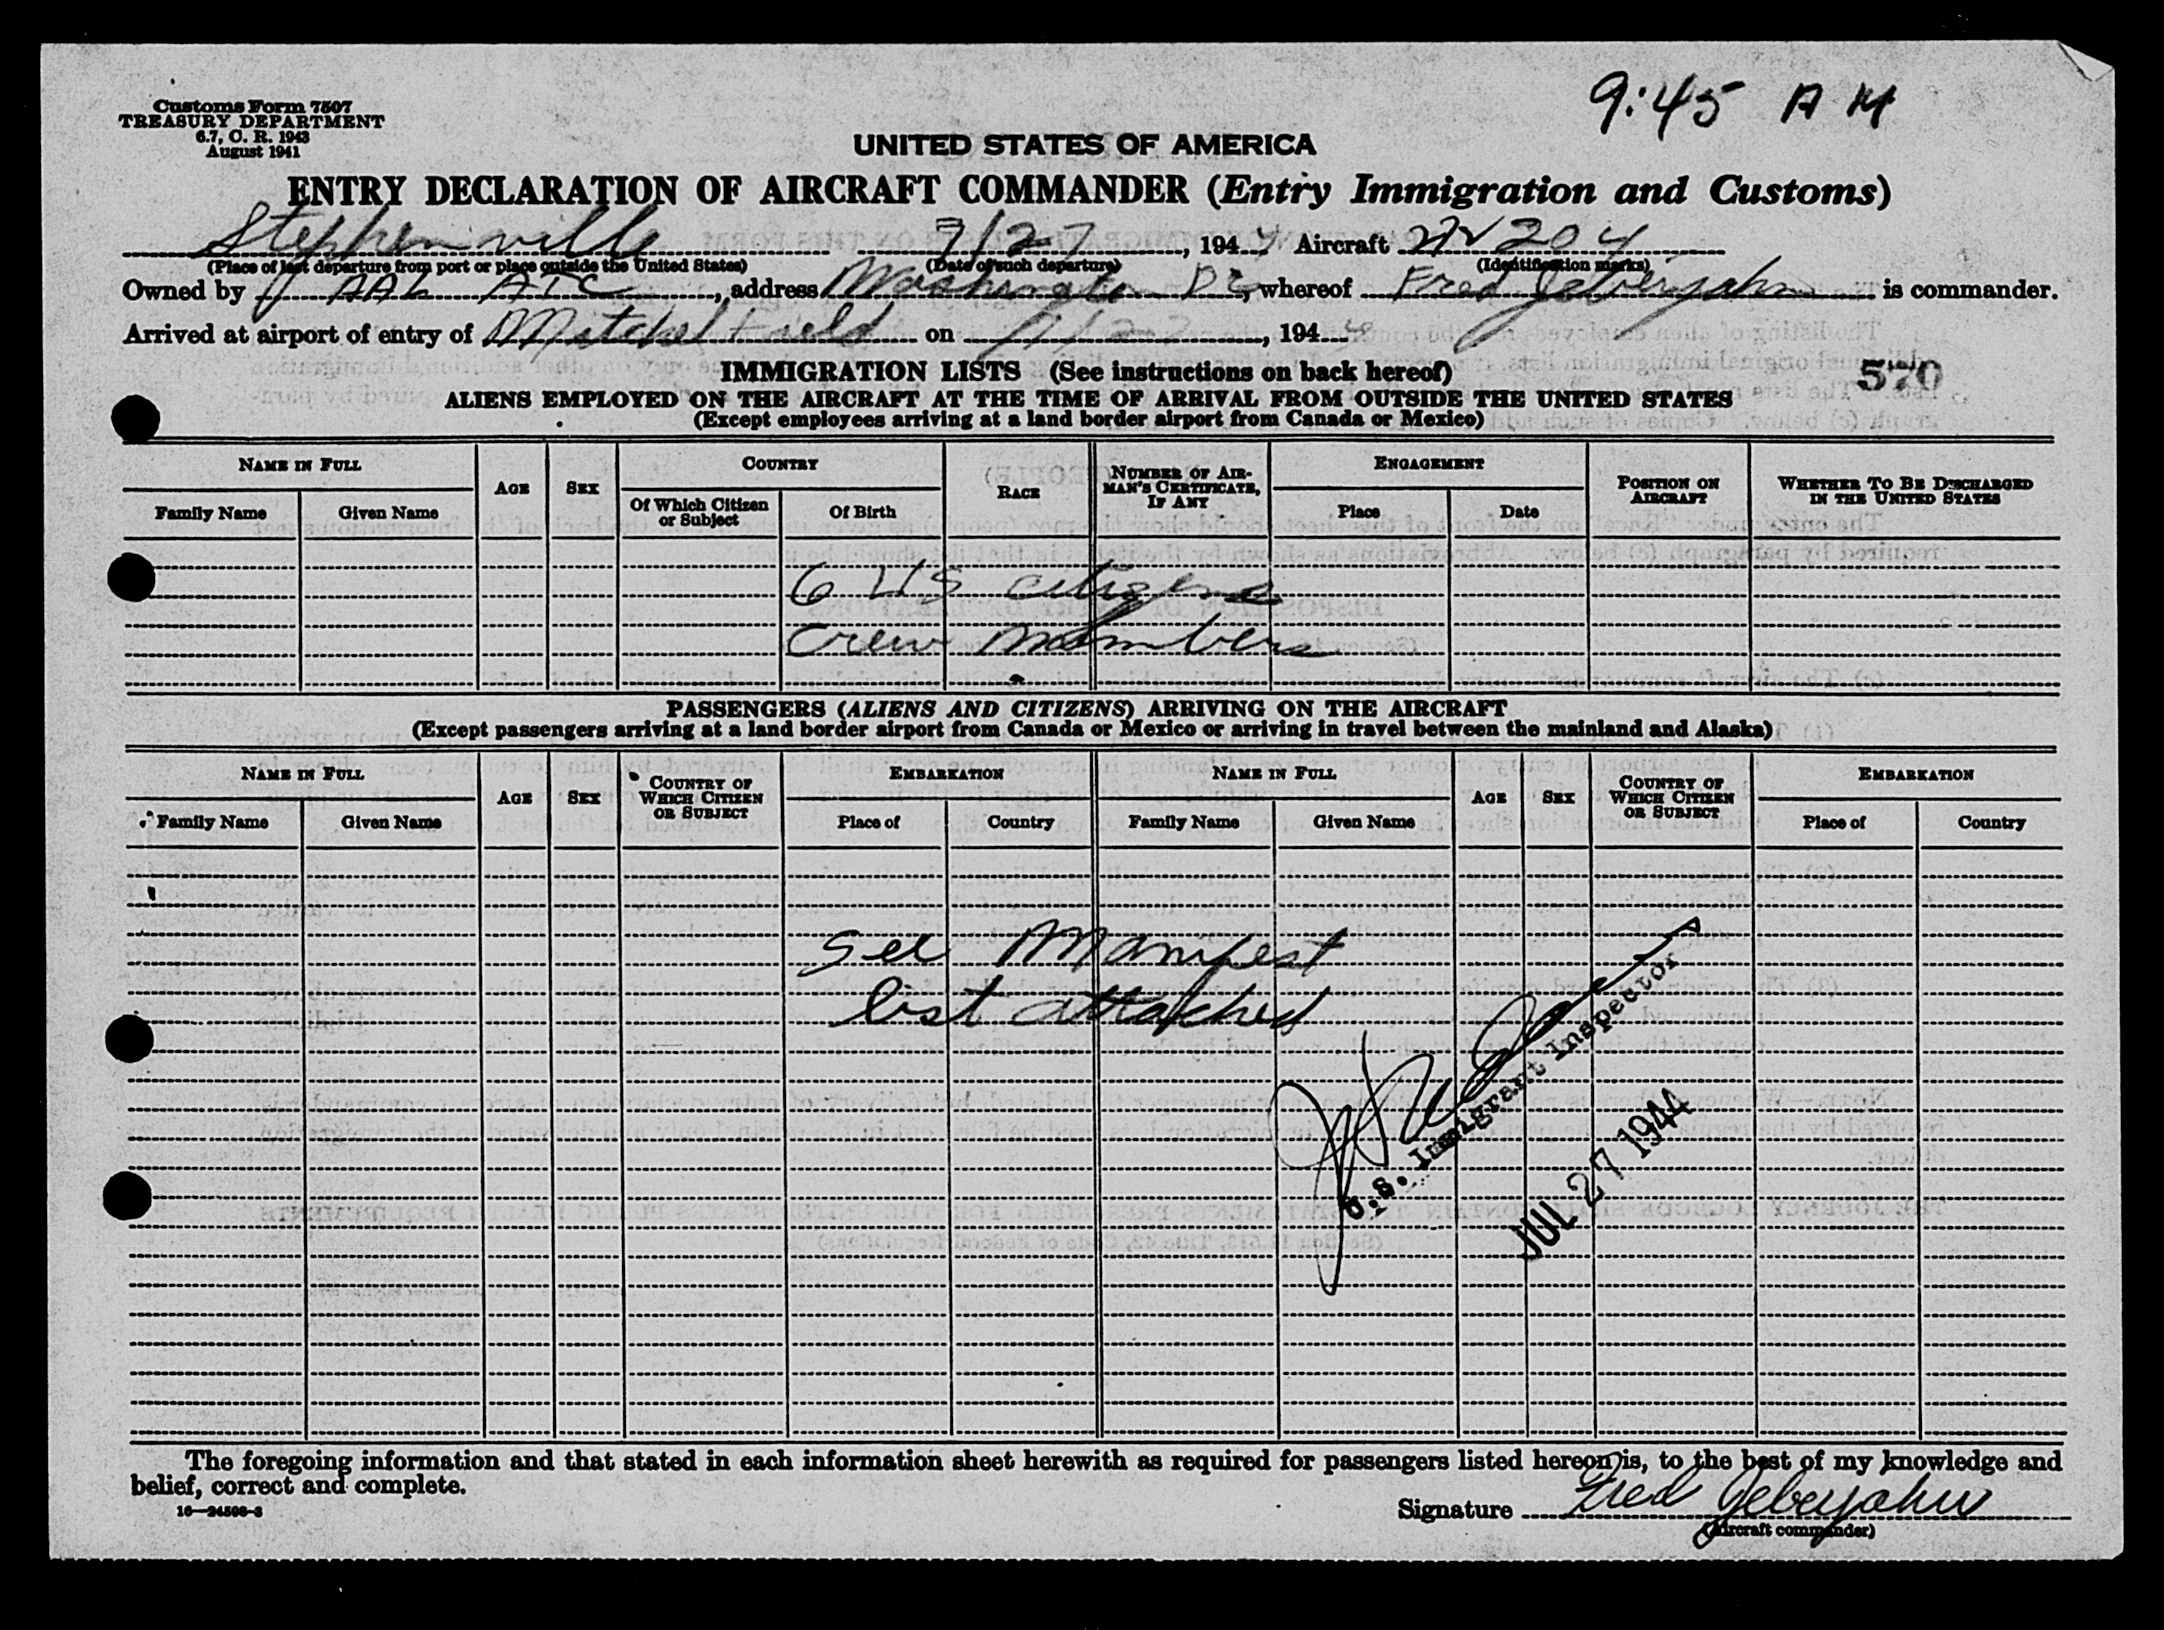 9:45 AM
Customs Form 7507
TREASURY DEPARTMENT
6.7, C. R. 1943
August 1941
UNITED STATES OF AMERICA
ENTRY DECLARATION OF AIRCRAFT COMMANDER (Entry Immigration and Customs)
Stephenville 7/27, 1944 Aircraft 204
(Place of last departure from port or place outside the United States) (Date of such departure) (Identification marks)
Owned by AAL ATC, address Washington DC, whereof Fred Geberjahn is commander.
Arrived at airport of entry of Mitchel Field on 7/27, 194
IMMIGRATION LISTS (See instructions on back hereof)
570
ALIENS EMPLOYED ON THE AIRCRAFT AT THE TIME OF ARRIVAL FROM OUTSIDE THE UNITED STATES
(Except employees arriving at a land border airport from Canada or Mexico)
NAME IN FULL AGE SEX COUNTRY RACE NUMBER OF AIRMAN'S CERTIFICATE, IF ANY ENGAGEMENT POSITION ON AIRCRAFT WHETHER TO BE DISCHARGED IN THE UNITED STATES
Family Name Given Name Of Which Citizen or Subject Of Birth Place Date
6 US citizens
crew members
PASSENGERS (ALIENS AND CITIZENS) ARRIVING ON THE AIRCRAFT
(Except passengers arriving at a land border airport from Canada or Mexico or arriving in travel between the mainland and Alaska)
NAME IN FULL AGE SEX COUNTRY OF WHICH CITIZEN OR SUBJECT EMBARKATION NAME IN FULL AGE SEX COUNTRY OF WHICH CITIZEN OR SUBJECT EMBARKATION
Family Name Given Name Place of Country Family Name Given Name Place of Country
See Manifest
list attached
U.S. Immigrant Inspector
JUL 27 1944
The foregoing information and that stated in each information sheet herewith as required for passengers listed hereon is, to the best of my knowledge and
belief, correct and complete.
16—24508-2
Signature Fred Geberjahn
(Aircraft commander)